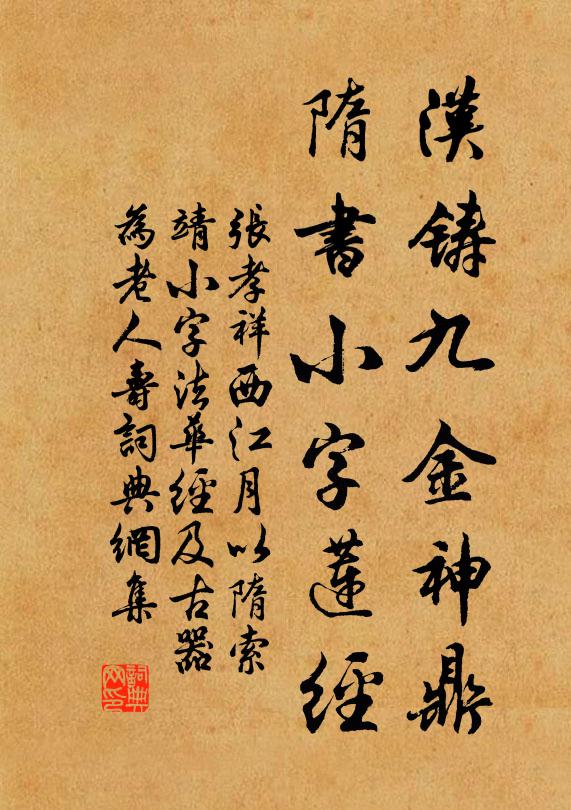 漢鑄九金神鼎
隋書小字蓮經
張孝祥西江月以隋索
靖小字法華經及古器
為老人壽詞典網集
詞典網印